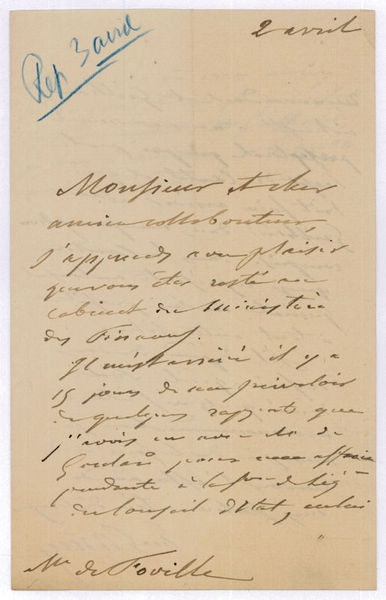 Rep 3 avril
2 avril
Monsieur et cher
ancien collaborateur,
J'apprends avec plaisir
que vous êtes resté au
cabinet du Ministère
des Finances.
Il m'est arrivé il y a
15 jours de
de quelques rapports que
j'avois eu avec M. de
pour une affaire
pendante à la son de Lég
du Conseil d'Etat,
Mr. de Foville